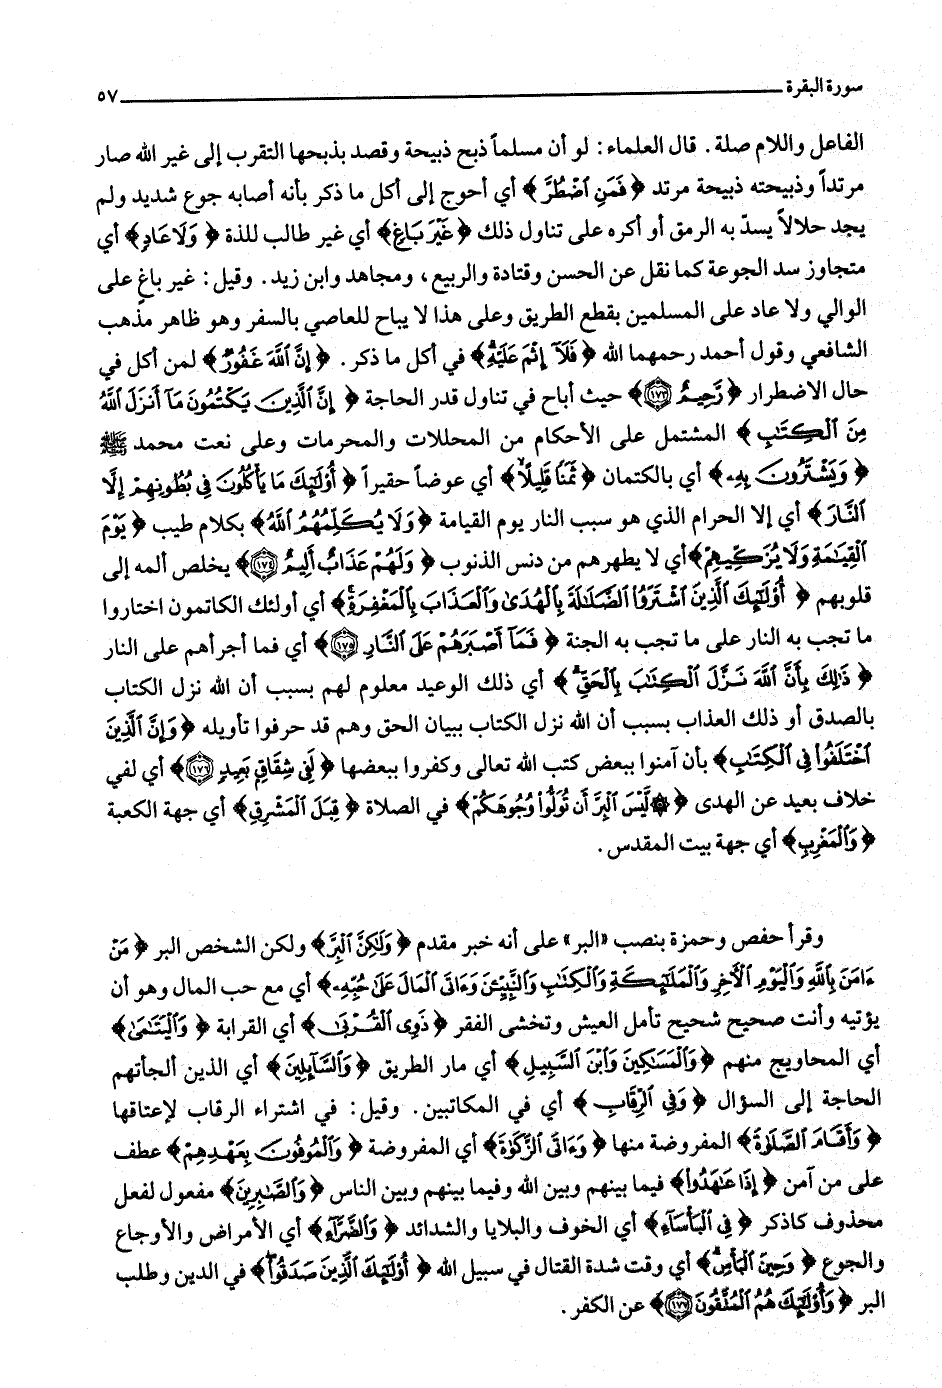 سورة البقرة ٥٧
الفاعل واللام صلة. قال العلماء: لو أن مسلماً ذبح ذبيحة وقصد بذبحها التقرب إلى غير الله صار
مرتداً وذبيحته ذبيحة مرتد ﴿ فَمَنِ ٱضْطُرَّ ﴾ أي أحوج إلى أكل ما ذكر بأنه أصابه جوع شديد ولم
يجد حلالاً يسدّ به الرمق أو أكره على تناول ذلك ﴿ غَيْرَ بَاغٍ ﴾ أي غير طالب للذة ﴿ وَلَا عَادٍ ﴾ أي
متجاوز سد الجوعة كما نقل عن الحسن وقتادة والربيع، ومجاهد وابن زيد. وقيل: غير باغ على
الوالي ولا عاد على المسلمين بقطع الطريق وعلى هذا لا يباح للعاصي بالسفر وهو ظاهر مذهب
الشافعي وقول أحمد رحمهما الله ﴿ فَلَآ إِثْمَ عَلَيْهِ ﴾ في أكل ما ذكر. ﴿ إِنَّ ٱللَّهَ غَفُورٌ ﴾ لمن أكل في
حال الاضطرار ﴿ رَّحِيمٌ ١٧٣ ﴾ حيث أباح في تناول قدر الحاجة ﴿ إِنَّ ٱلَّذِينَ يَكْتُمُونَ مَآ أَنزَلَ ٱللَّهُ
مِنَ ٱلْكِتَٰبِ ﴾ المشتمل على الأحكام من المحللات والمحرمات وعلى نعت محمد ﷺ
﴿ وَيَشْتَرُونَ بِهِۦ ﴾ أي بالكتمان ﴿ ثَمَنًا قَلِيلًا ﴾ أي عوضاً حقيراً ﴿ أُوْلَٰٓئِكَ مَا يَأْكُلُونَ فِى بُطُونِهِمْ إِلَّا
ٱلنَّارَ ﴾ أي إلا الحرام الذي هو سبب النار يوم القيامة ﴿ وَلَا يُكَلِّمُهُمُ ٱللَّهُ ﴾ بكلام طيب ﴿ يَوْمَ
ٱلْقِيَٰمَةِ وَلَا يُزَكِّيهِمْ ﴾ أي لا يطهرهم من دنس الذنوب ﴿ وَلَهُمْ عَذَابٌ أَلِيمٌ ١٧٤ ﴾ يخلص ألمه إلى
قلوبهم ﴿ أُوْلَٰٓئِكَ ٱلَّذِينَ ٱشْتَرَوُا۟ ٱلضَّلَٰلَةَ بِٱلْهُدَىٰ وَٱلْعَذَابَ بِٱلْمَغْفِرَةِ ﴾ أي أولئك الكاتمون اختاروا
ما تجب به النار على ما تجب به الجنة ﴿ فَمَآ أَصْبَرَهُمْ عَلَى ٱلنَّارِ ١٧٥ ﴾ أي فما أجرأهم على النار
﴿ ذَٰلِكَ بِأَنَّ ٱللَّهَ نَزَّلَ ٱلْكِتَٰبَ بِٱلْحَقِّ ﴾ أي ذلك الوعيد معلوم لهم بسبب أن الله نزل الكتاب
بالصدق أو ذلك العذاب بسبب أن الله نزل الكتاب ببيان الحق وهم قد حرفوا تأويله ﴿ وَإِنَّ ٱلَّذِينَ
ٱخْتَلَفُوا۟ فِى ٱلْكِتَٰبِ ﴾ بأن آمنوا ببعض كتب الله تعالى وكفروا ببعضها ﴿ لَفِى شِقَاقٍۭ بَعِيدٍ ١٧٦ ﴾ أي لفي
خلاف بعيد عن الهدى ﴿ ۞ لَّيْسَ ٱلْبِرَّ أَن تُوَلُّوا۟ وُجُوهَكُمْ ﴾ في الصلاة ﴿ قِبَلَ ٱلْمَشْرِقِ ﴾ أي جهة الكعبة
﴿ وَٱلْمَغْرِبِ ﴾ أي جهة بيت المقدس.
وقرأ حفص وحمزة بنصب «البر» على أنه خبر مقدم ﴿ وَلَٰكِنَّ ٱلْبِرَّ ﴾ ولكن الشخص البر ﴿ مَنْ
ءَامَنَ بِٱللَّهِ وَٱلْيَوْمِ ٱلْءَاخِرِ وَٱلْمَلَٰٓئِكَةِ وَٱلْكِتَٰبِ وَٱلنَّبِيِّۦنَ وَءَاتَى ٱلْمَالَ عَلَىٰ حُبِّهِۦ ﴾ أي مع حب المال وهو أن
يؤتيه وأنت صحيح شحيح تأمل العيش وتخشى الفقر ﴿ ذَوِى ٱلْقُرْبَىٰ ﴾ أي القرابة ﴿ وَٱلْيَتَٰمَىٰ ﴾
أي المحاويج منهم ﴿ وَٱلْمَسَٰكِينَ وَٱبْنَ ٱلسَّبِيلِ ﴾ أي مار الطريق ﴿ وَٱلسَّآئِلِينَ ﴾ أي الذين ألجأتهم
الحاجة إلى السؤال ﴿ وَفِى ٱلرِّقَابِ ﴾ أي في المكاتبين. وقيل: في اشتراء الرقاب لإعتاقها
﴿ وَأَقَامَ ٱلصَّلَوٰةَ ﴾ المفروضة منها ﴿ وَءَاتَى ٱلزَّكَوٰةَ ﴾ أي المفروضة ﴿ وَٱلْمُوفُونَ بِعَهْدِهِمْ ﴾ عطف
على من آمن ﴿ إِذَا عَٰهَدُوا۟ ﴾ فيما بينهم وبين الله وفيما بينهم وبين الناس ﴿ وَٱلصَّٰبِرِينَ ﴾ مفعول لفعل
محذوف كاذكر ﴿ فِى ٱلْبَأْسَآءِ ﴾ أي الخوف والبلايا والشدائد ﴿ وَٱلضَّرَّآءِ ﴾ أي الأمراض والأوجاع
والجوع ﴿ وَحِينَ ٱلْبَأْسِ ﴾ أي وقت شدة القتال في سبيل الله ﴿ أُوْلَٰٓئِكَ ٱلَّذِينَ صَدَقُوا۟ ﴾ في الدين وطلب
البر ﴿ وَأُوْلَٰٓئِكَ هُمُ ٱلْمُتَّقُونَ ١٧٧ ﴾ عن الكفر.